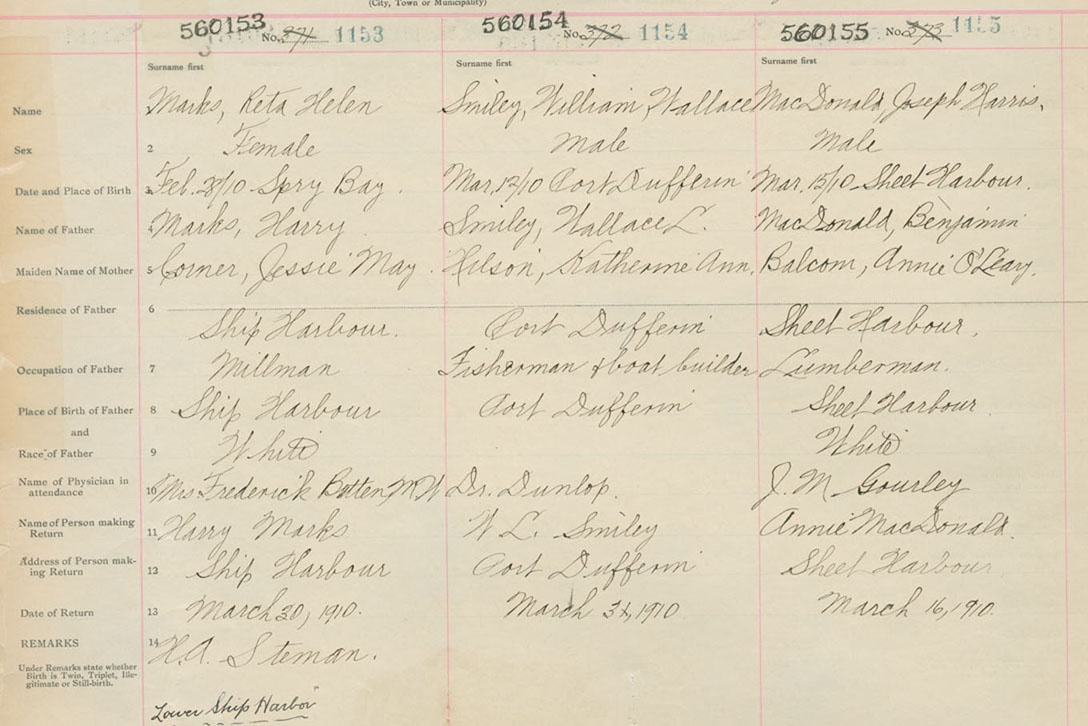 (City, Town or Municipality)
560153 No. 371 1153 560154 No. 372 1154 560155 No. 373 1155
Surname first Surname first Surname first
Name Marks, Reta Helen Smiley, William Wallace MacDonald, Joseph Harris.
Sex 2 Female Male Male
Date and Place of Birth 3 Feb. 28/10 Spry Bay. Mar. 12/10 Port Dufferin Mar. 15/10 Sheet Harbour.
Name of Father 4 Marks, Harry Smiley, Wallace L. MacDonald, Benjamin
Maiden Name of Mother 5 Corner, Jessie May. Hilson, Katherine Ann. Balcom, Annie O'Leary.
Residence of Father 6
Ship Harbour. Port Dufferin Sheet Harbour.
Occupation of Father 7 Millman Fisherman & boat builder Lumberman.
Place of Birth of Father 8 Ship Harbour Port Dufferin Sheet Harbour
and
Race of Father 9 White White
Name of Physician in
attendance 10 Mrs. Frederick Dr. Dunlop. J. M Gourley
Name of Person making
Return 11 Harry Marks W L. Smiley Annie MacDonald.
Address of Person mak-
ing Return 12 Ship Harbour Port Dufferin Sheet Harbour
Date of Return 13 March 20, 1910. March 1910 March 16, 1910.
REMARKS 14 H.A. Steman.
Under Remarks state whether
Birth is Twin, Triplet, Ille-
gitimate or Still-birth.
Lower Ship Harbor